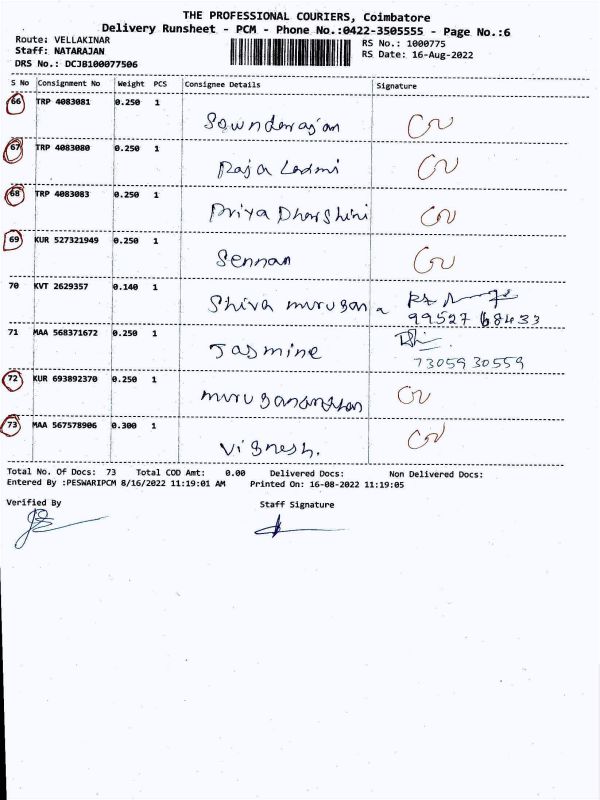 THE PROFESSIONAL COURIERS, Coimbatore
Delivery Runsheet - PCM - Phone No.:0422-3505555 - Page No.:6
Route: VELLAKINAR
RS No.: 1000775
Staff: NATARAJAN
RS Date: 16-Aug-2022
DRS No.: DCJB100077506
S No Consignment No Weight PCS Consignee Details Signature
66 TRP 4083081 0.250 1
Sowndarajan
67 TRP 4083080 0.250 1
Raja Laxmi
68 TRP 4083083 0.250 1
Priya Dharshini
69 KUR 527321949 0.250 1
Sennan
70 KVT 2629357 0.140 1
Shiva murugan
99527 68433
71 MAA 568371672 0.250 1
Jasmine
7305930559
72 KUR 693892370 0.250 1
73 MAA 567578906 0.300 1
Vignesh.
Total No. Of Docs: 73 Total COD Amt: 0.00 Delivered Docs: Non Delivered Docs:
Entered By :PESWARIPCM 8/16/2022 11:19:01 AM Printed On: 16-08-2022 11:19:05
Verified By Staff Signature